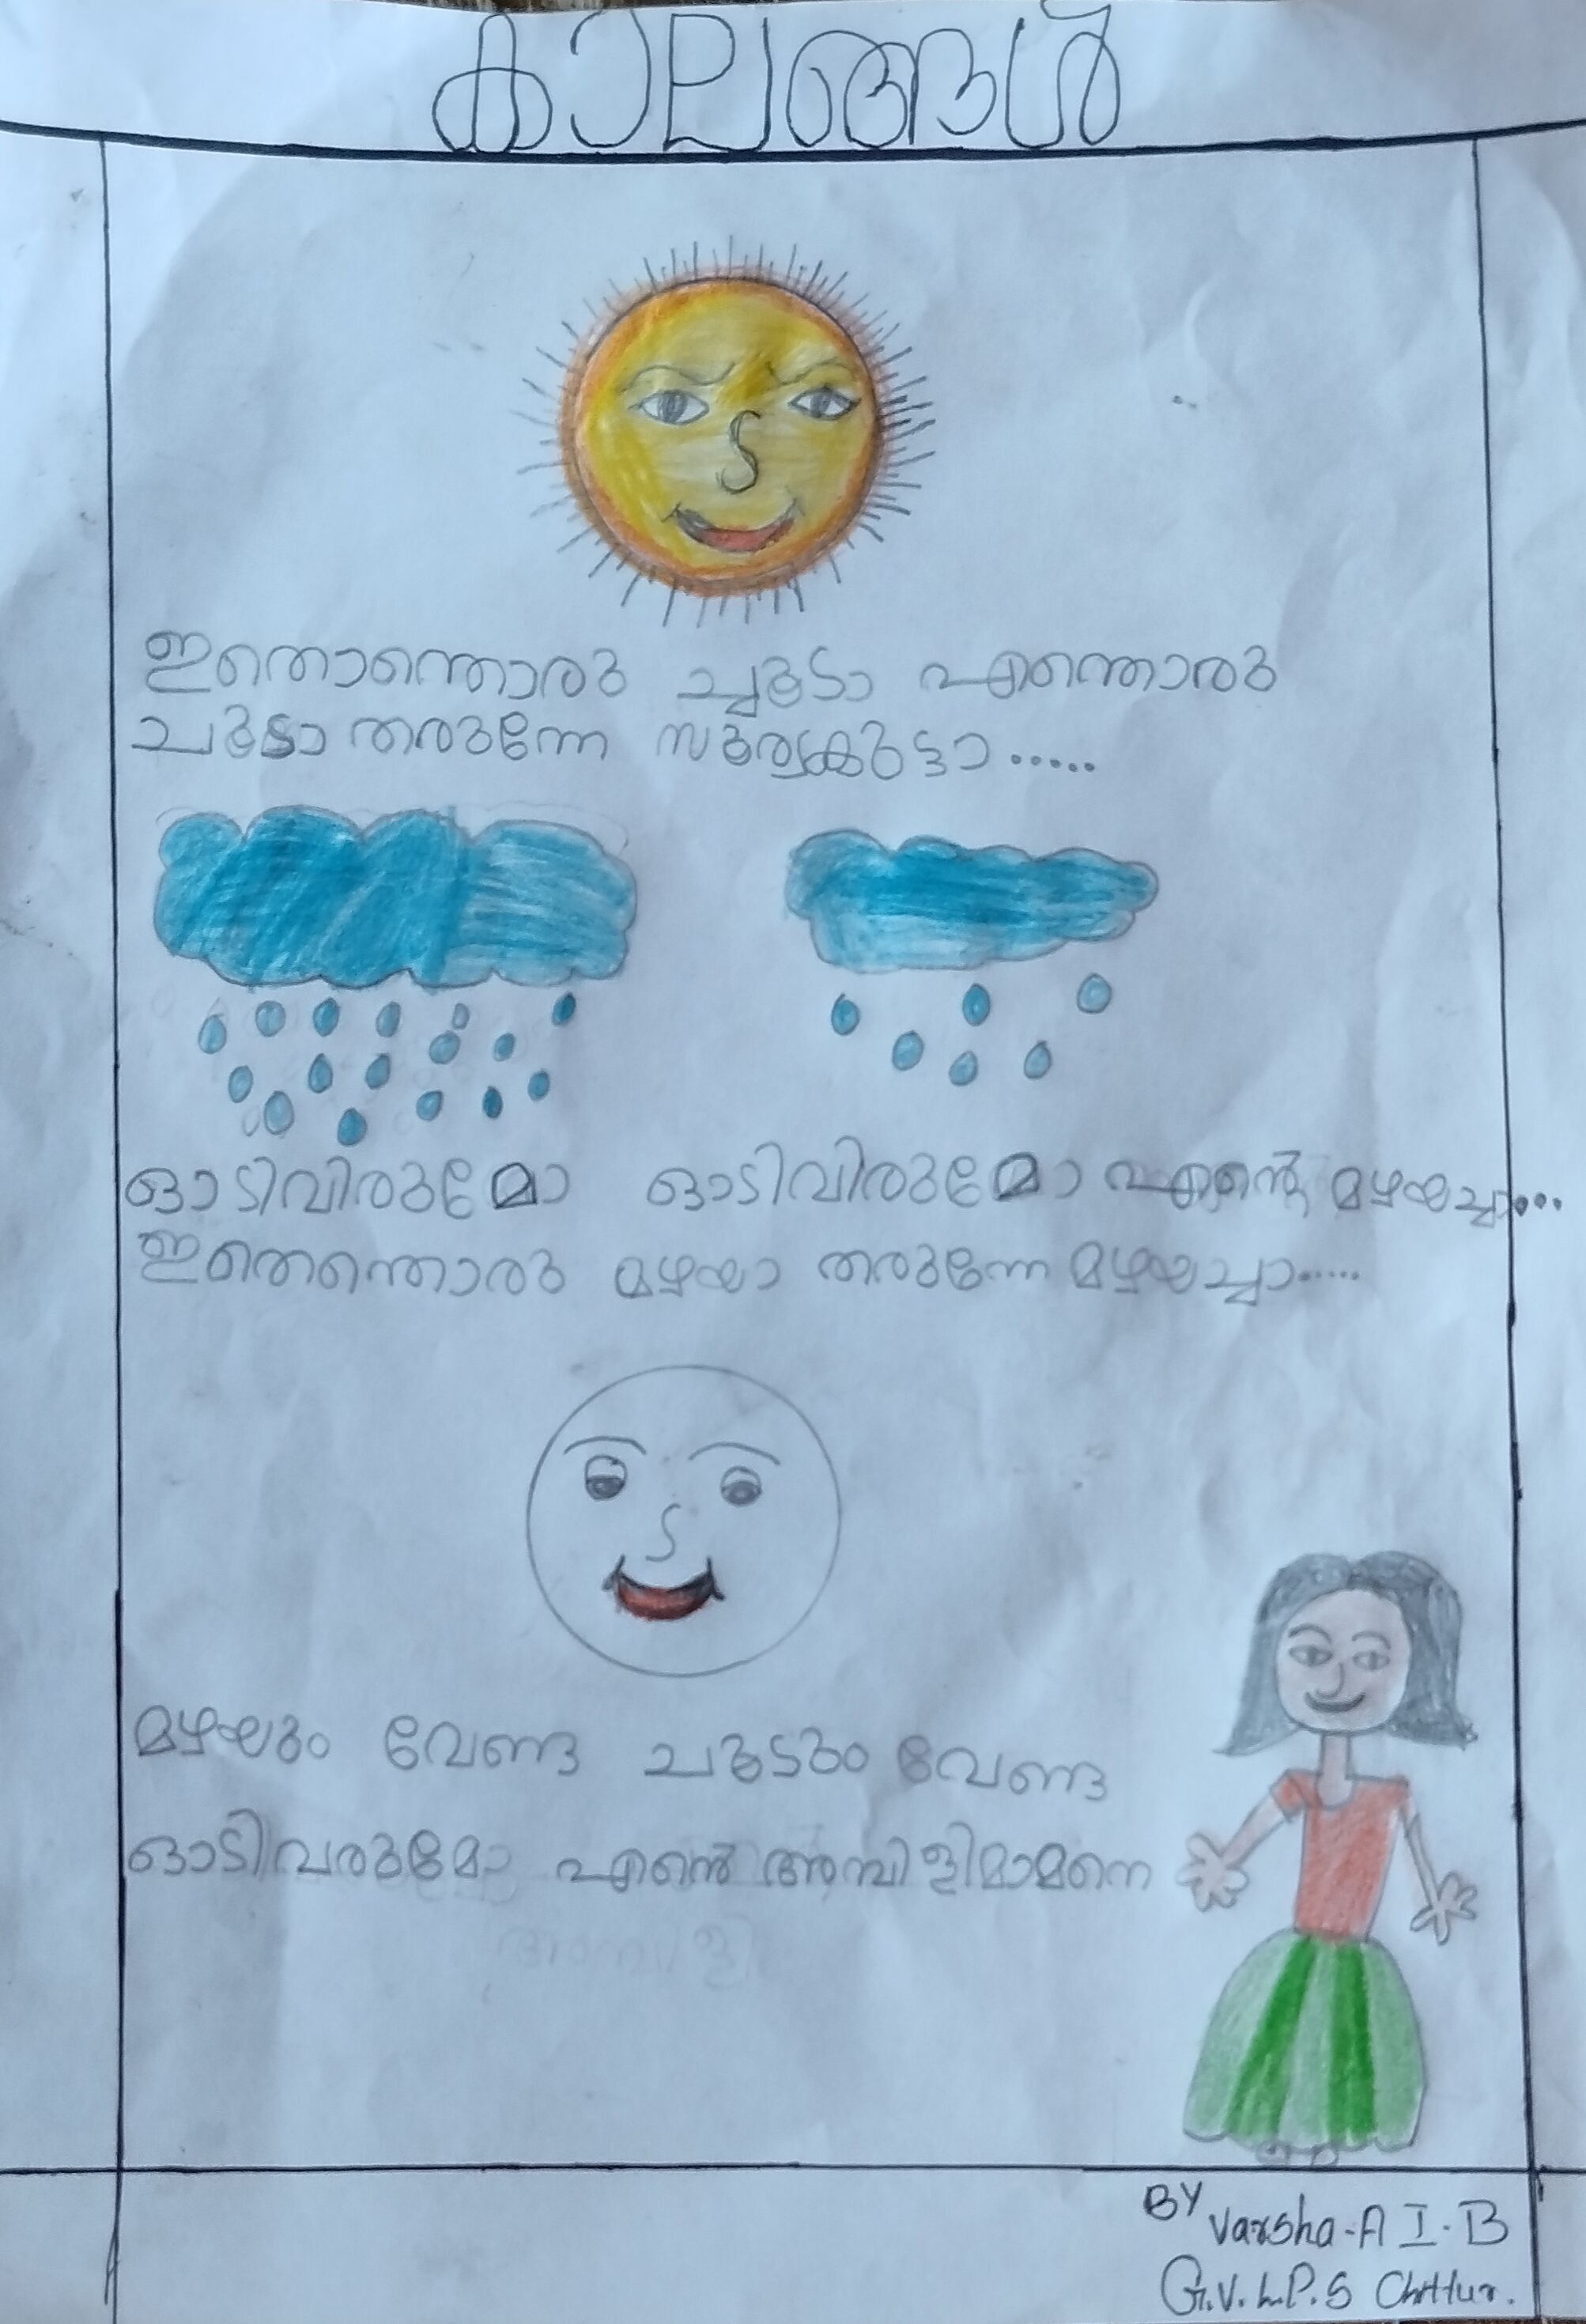 കാലങ്ങൾ
ഇതൊന്തൊരു ച്ചൂടാ എന്തൊരു
ചൂടാ തരുന്നേ സൂര്യക്കുട്ടാ.....
ഓടിവിരുമോ ഓടിവിരുമോ എന്റെ മഴയച്ചാ....
ഇതെന്തൊരു മഴയാ തരുന്നേ മഴയച്ചാ.....
മഴയും വേണ്ട ചൂടും വേണ്ട
ഓടിവരുമോ എന്റെ അമ്പിളിമാമനെ
അമ്പിളി
BY Varsha-A I-B
G.V.L.P.S Chittur.